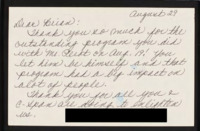 August 29
Dear Brian:
Thank you so much for the
outstanding program you did
with Mr. on Aug. 19! You
let him be himself and that
program had a big impact on
a lot of people.
Thank you for all you &
C-Span are doing to enlighten
us.